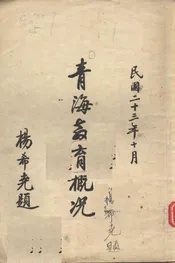 民國二十三年十月
青海教育概況
楊希堯題